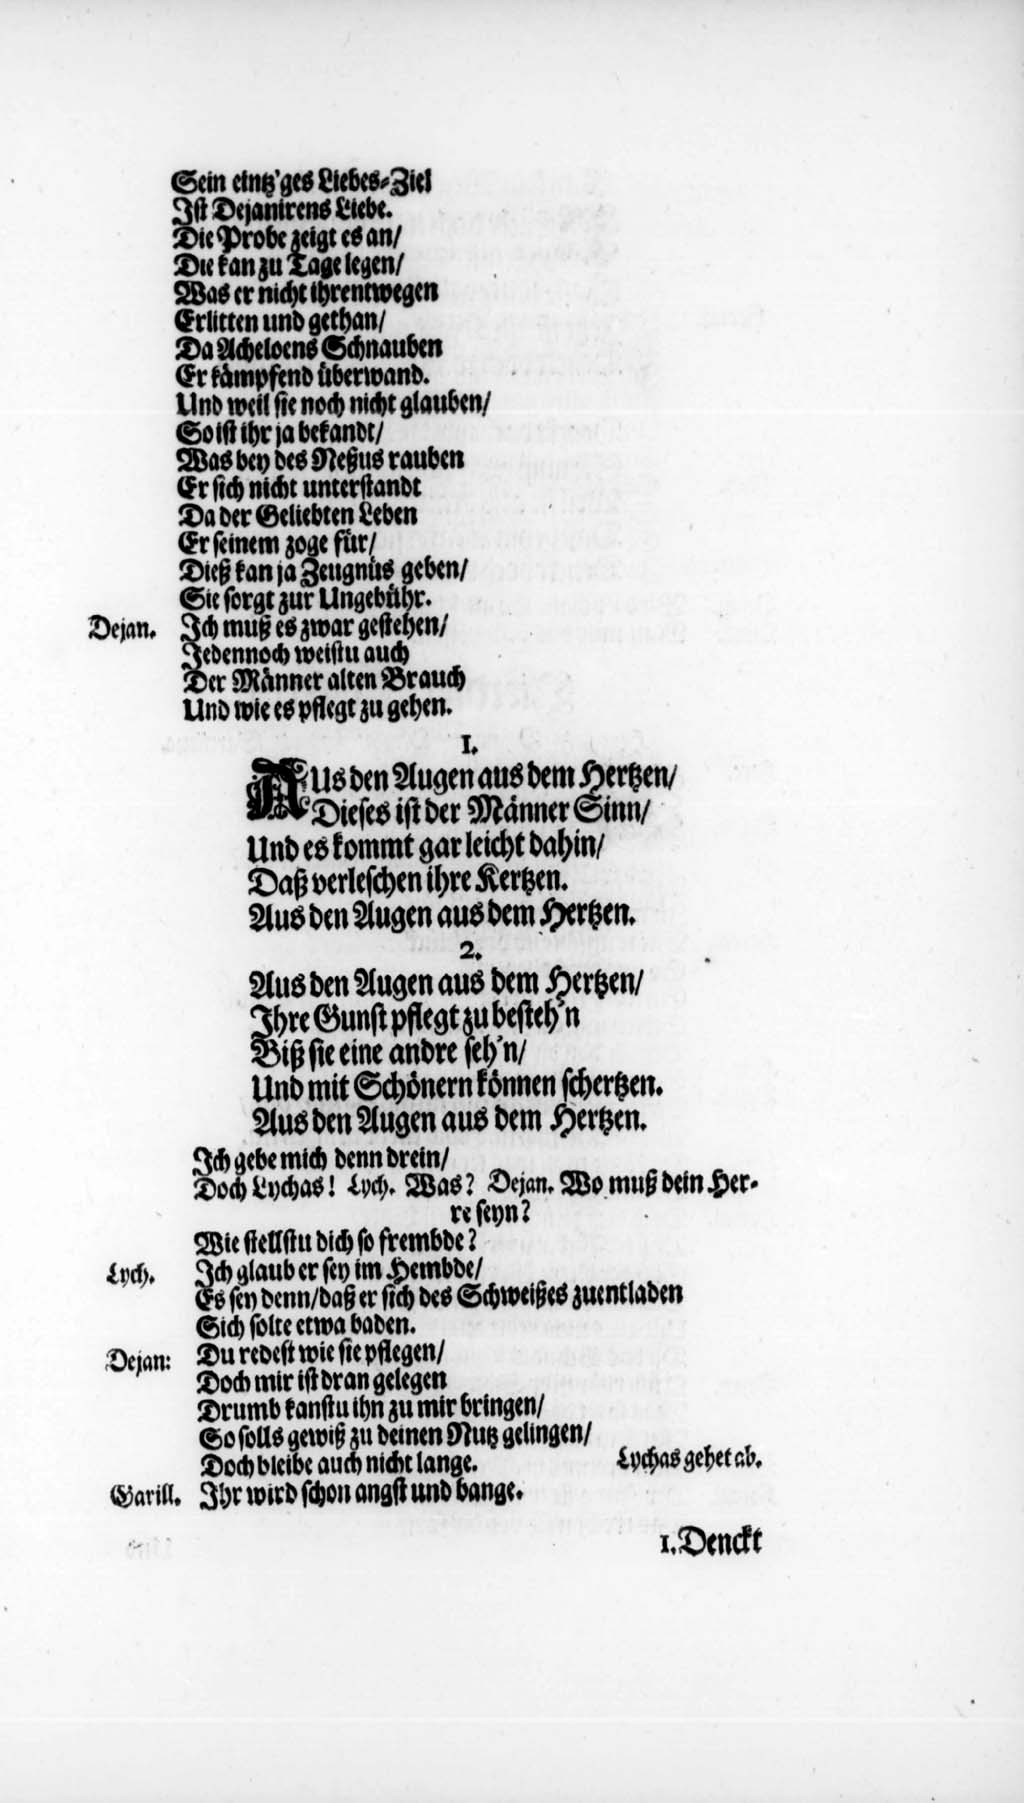 Sein eintz'ges Liebes-Ziel
Ist Dejanirens Liebe.
Die Probe zeigt es an/
Die kan zu Tage legen/
Was er nicht ihrentwegen
Erlitten und gethan/
Da Acheloens Schnauben
Er kämpfend überwand.
Und weil sie noch nicht glauben/
So ist ihr ja bekandt/
Was bey des Neßus rauben
Er sich nicht unterstandt
Da der Geliebten Leben
Er seinem zoge für/
Dieß kan ja Zeugnüs geben/
Sie sorgt zur Ungebühr.
Dejan. Ich muß es zwar gestehen/
Jedennoch weistu auch
Der Männer alten Brauch
Und wie es pflegt zu gehen.
1.
AUs den Augen aus dem Hertzen/
Dieses ist der Männer Sinn/
Und es kommt gar leicht dahin/
Daß verleschen ihre Kertzen.
Aus den Augen aus dem Hertzen.
2.
Aus den Augen aus dem Hertzen/
Ihre Gunst pflegt zu besteh'n
Biß sie eine andre seh'n/
Und mit Schönern können schertzen.
Aus den Augen aus dem Hertzen.
Ich gebe mich denn drein/
Doch Lychas! Lych. Was? Dejan. Wo muß dein Her-
re seyn?
Wie stellstu dich so frembde?
Lych. Ich glaub er sey im Hembde/
Es sey denn/daß er sich des Schweißes zuentladen
Sich solte etwa baden.
Dejan: Du redest wie sie pflegen/
Doch mir ist dran gelegen
Drumb kanstu ihn zu mir bringen/
So solls gewiß zu deinen Nutz gelingen/
Doch bleibe auch nicht lange. Lychas gehet ab.
Garill. Ihr wird schon angst und bange.
1. Denckt